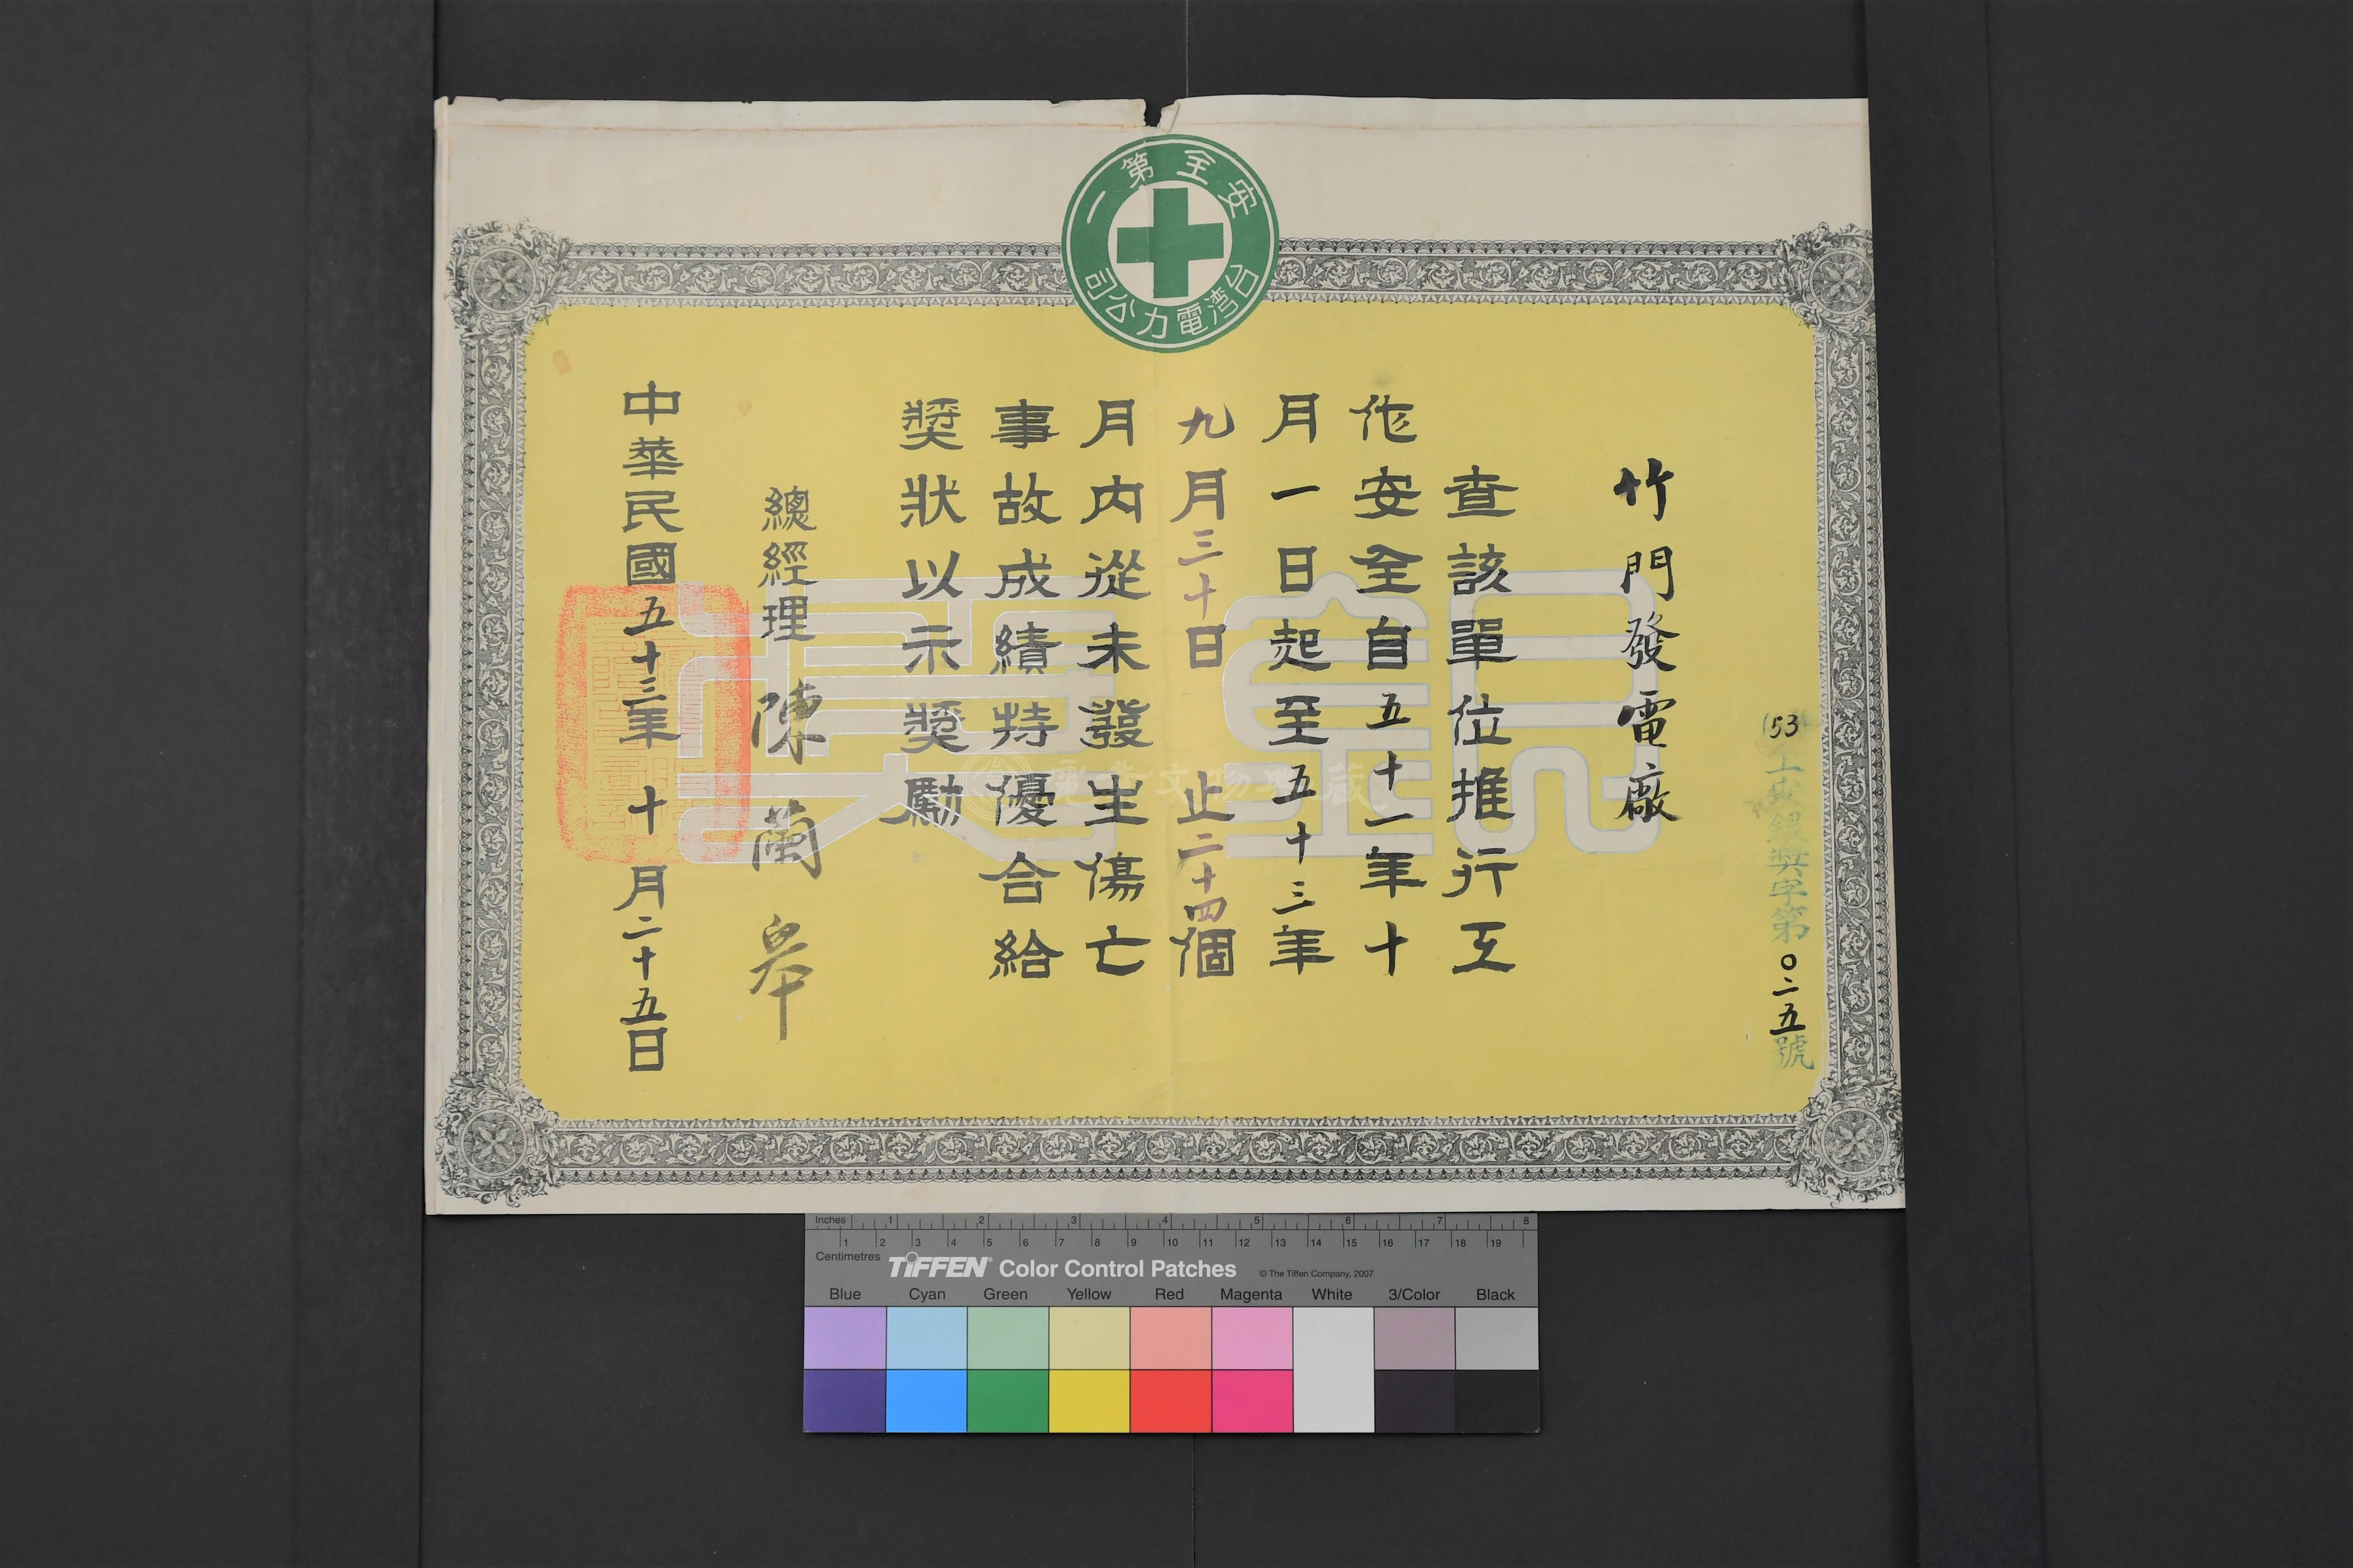 安全第一
台湾電力公司
(53)工安銀獎字第0二五號
竹門發電廠
查該單位推行工
作安全自五十一年十
月一日起至五十三年
九月三十日止二十四個
月內從未發生傷亡
事故成績特優合給
獎狀以示獎勵
總經理 陳蘭皋
中華民國五十三年十月二十五日
電業文物典藏
Inches 1 2 3 4 5 6 7 8
1 2 3 4 5 6 7 8 9 10 11 12 13 14 15 16 17 18 19
Centimetres
TIFFEN Color Control Patches © The Tiffen Company, 2007
Blue Cyan Green Yellow Red Magenta White 3/Color Black